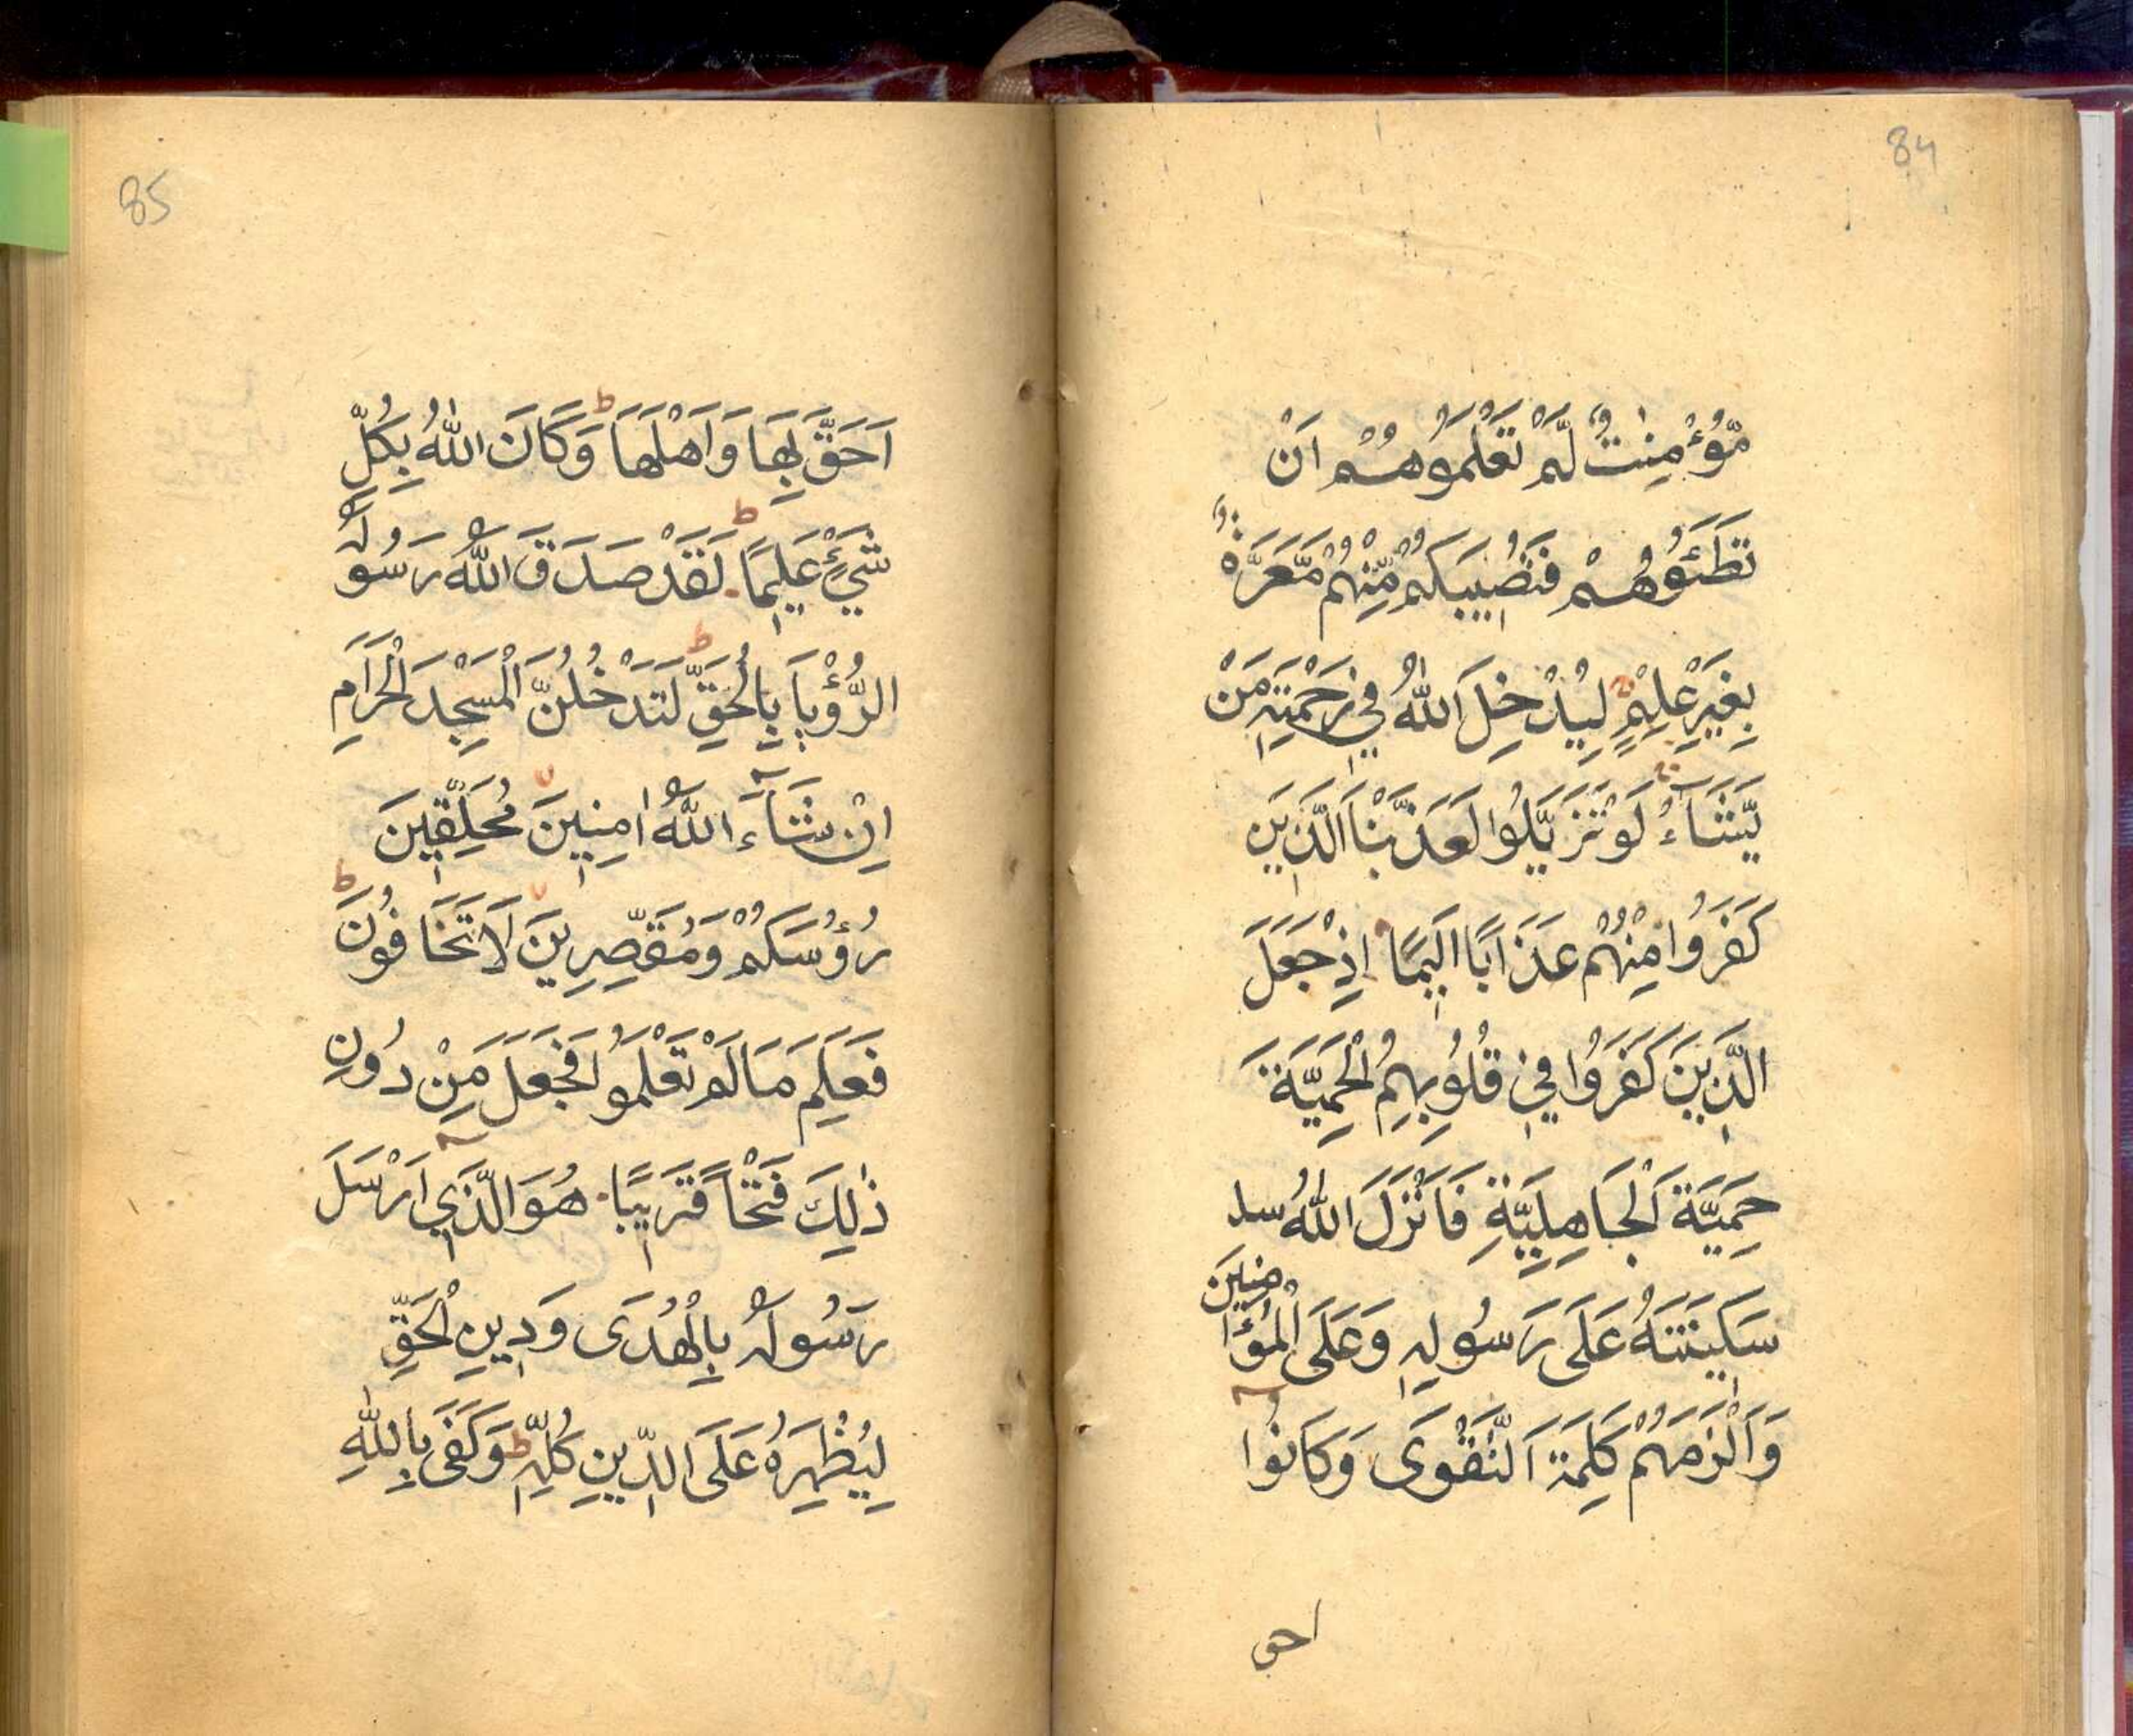 84
مُّؤْمِنٰتٌ لَّمْ تَعْلَمُوهُمْ اَنْ
تَطَئُوهُمْ فَتُصِيبَكُمْ مِّنْهُمْ مَّعَرَّةٌ
بِغَيْرِ عِلْمٍ لِيُدْخِلَ اللّٰهُ فِي رَحْمَتِهٖ مَنْ
يَّشَآءُ لَوْ تَزَيَّلُوا لَعَذَّبْنَا الَّذِينَ
كَفَرُوا مِنْهُمْ عَذَابًا اَلِيمًا اِذْ جَعَلَ
الَّذِينَ كَفَرُوا فِي قُلُوبِهِمُ الْحَمِيَّةَ
حَمِيَّةَ الْجَاهِلِيَّةِ فَاَنْزَلَ اللّٰهُ سد
سَكِينَتَهُ عَلَى رَسُولِهٖ وَعَلَى الْمُؤْمِنِينَ
وَاَلْزَمَهُمْ كَلِمَةَ التَّقْوَى وَكَانُوا
احق
85
اَحَقَّ بِهَا وَاَهْلَهَا وَكَانَ اللّٰهُ بِكُلِّ
شَيْءٍ عَلِيمًا لَقَدْ صَدَقَ اللّٰهُ رَسُولَهُ
الرُّؤْيَا بِالْحَقِّ لَتَدْخُلُنَّ الْمَسْجِدَ الْحَرَامَ
اِنْ شَآءَ اللّٰهُ اٰمِنِينَ مُحَلِّقِينَ
رُؤُسَكُمْ وَمُقَصِّرِينَ لَا تَخَافُونَ
فَعَلِمَ مَا لَمْ تَعْلَمُوا فَجَعَلَ مِنْ دُونِ
ذٰلِكَ فَتْحًا قَرِيبًا هُوَ الَّذِي اَرْسَلَ
رَسُولَهُ بِالْهُدَى وَدِينِ الْحَقِّ
لِيُظْهِرَهُ عَلَى الدِّينِ كُلِّهٖ وَكَفَى بِاللّٰهِ